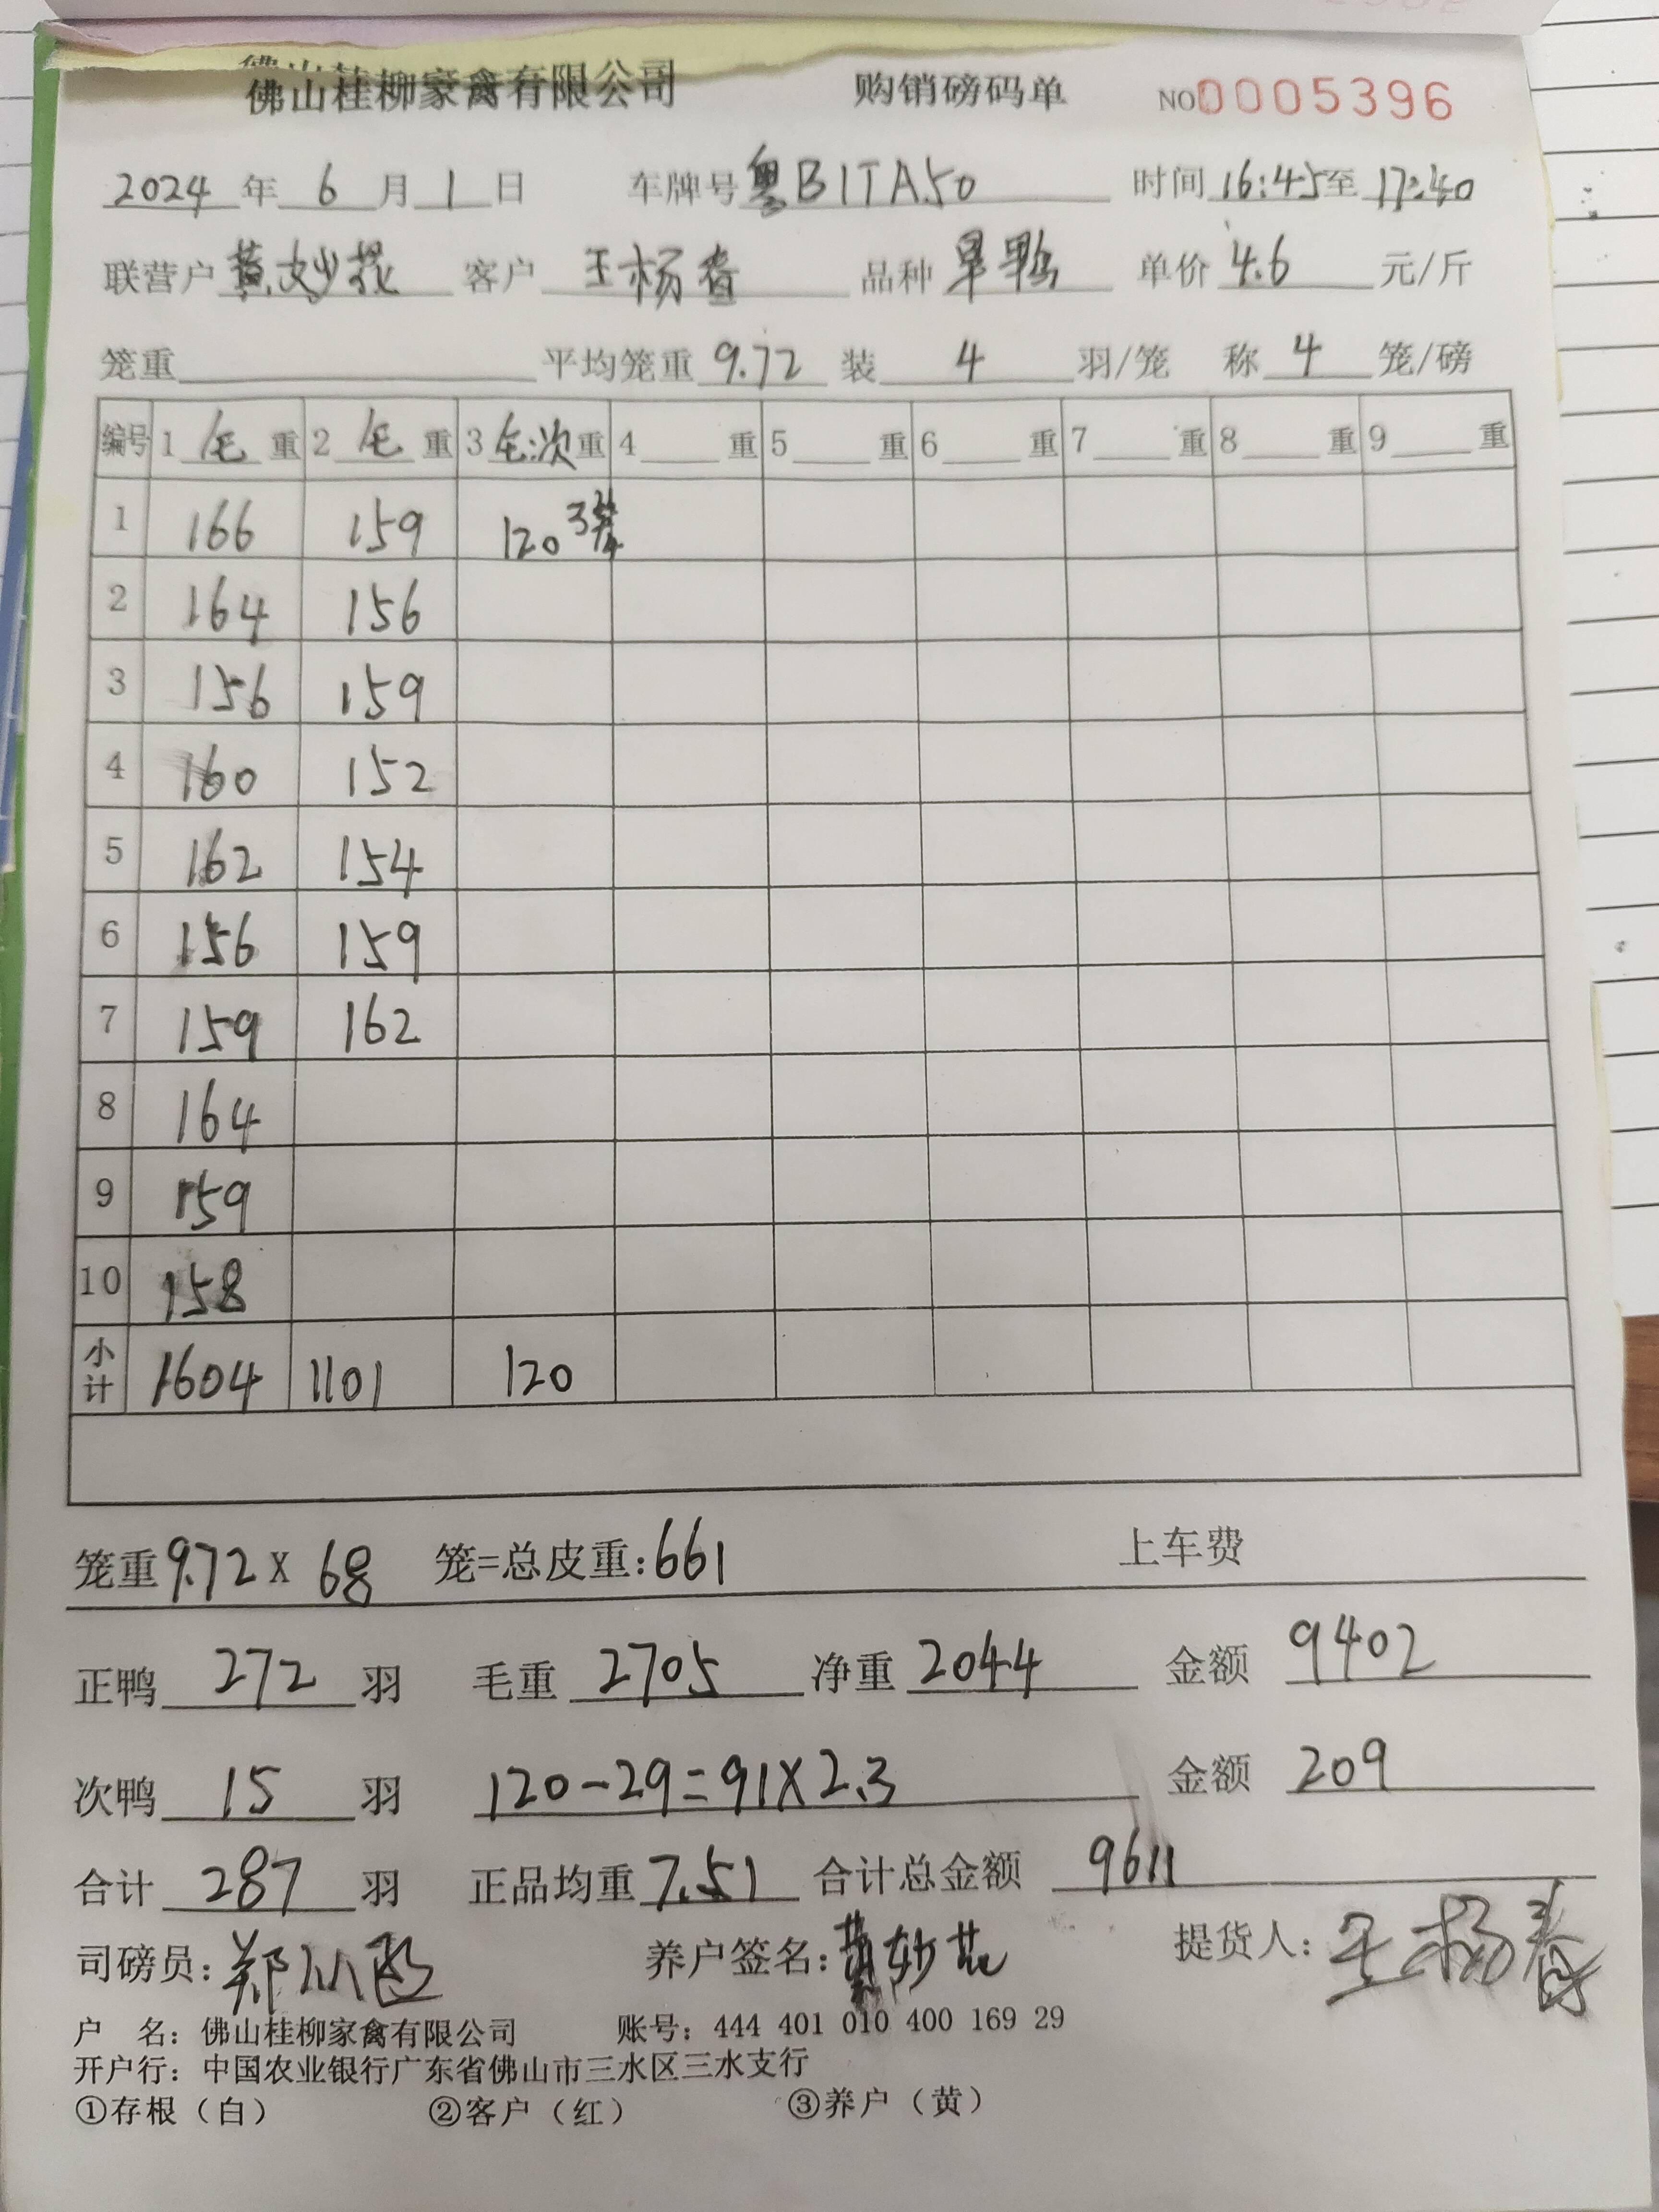 佛山桂柳家禽有限公司 购销磅码单 NO 0005396
2024 年 6 月 1 日 车牌号 粤B1TA50 时间 16:45 至 17:40
联营户 黄妙花 客户 王杨春 品种 旱鸭 单价 4.6 元/斤
笼重 平均笼重 9.72 装 4 羽/笼 称 4 笼/磅
编号 1 毛 重 2 毛 重 3 毛:次 重 4 重 5 重 6 重 7 重 8 重 9 重
1 166 159 120 3笼
2 164 156
3 156 159
4 160 152
5 162 154
6 156 159
7 159 162
8 164
9 159
10 158
小计 1604 1101 120
笼重 9.72 X 68 笼=总皮重: 661 上车费
正鸭 272 羽 毛重 2705 净重 2044 金额 9402
次鸭 15 羽 120-29=91X2.3 金额 209
合计 287 羽 正品均重 7.51 合计总金额 9611
司磅员: 养户签名: 黄妙花 提货人: 王杨春
户 名: 佛山桂柳家禽有限公司 账号: 444 401 010 400 169 29
开户行: 中国农业银行广东省佛山市三水区三水支行
①存根（白） ②客户（红） ③养户（黄）